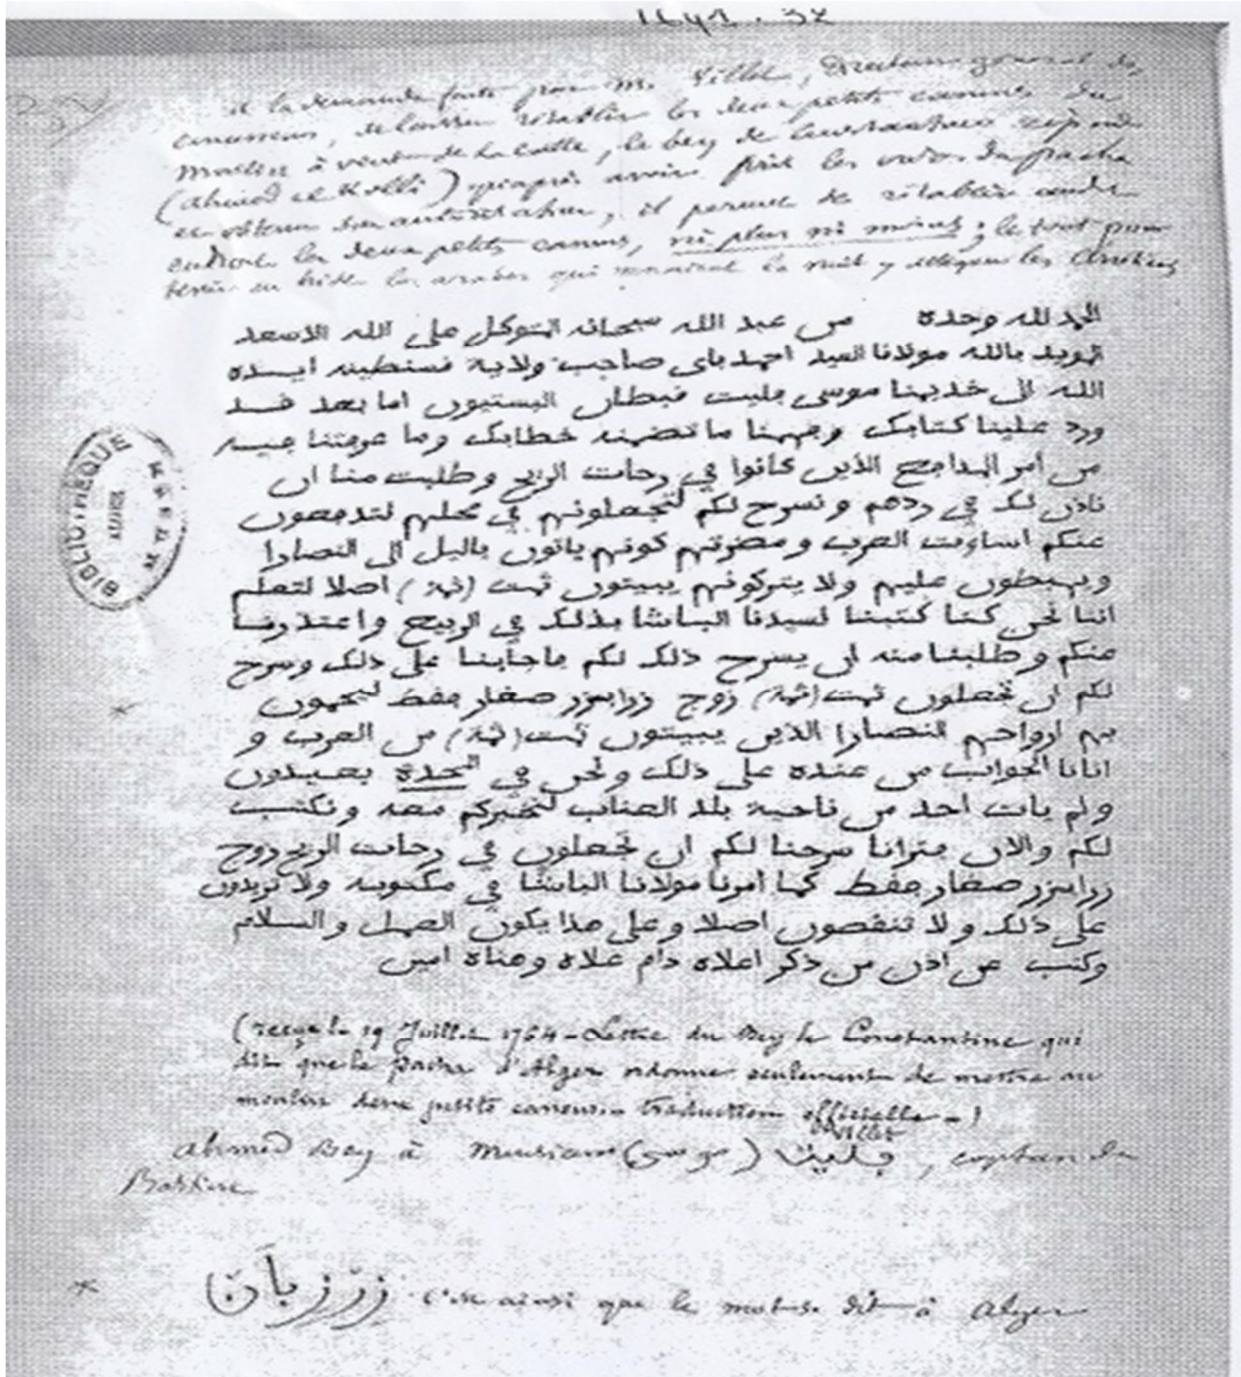 1641 . 32
à la demande faite par M. Villet, Directeur général des
concessions, de laisser rétablir les deux petits canons du
moulin à vent de la Calle, le bey de Constantine répond
(Ahmed el Kolli) qu'après avoir pris les ordres du pacha
et obtenu son autorisation, il permet de rétablir
les deux petits canons, ni plus ni moins, le tout pour
tenir en bride les arabes qui venaient la nuit y attaquer les Chrétiens
الحمد لله وحده من عبد الله سبحانه المتوكل على الله الاسعد
المويد بالله مولانا السيد احمد باي صاحب ولاية قسنطينه ايده
الله الى خديمنا موسى بليت قبطان البستيون اما بعد فقد
ورد علينا كتابك وفهمنا ما تضمنه خطابك وما عرفتنا فيه
من امر المدافع الذين كانوا في رحات الريح وطلبت منا ان
ناذن لك في ردهم ونسرح لكم لتجعلونهم في محلهم لتدفعون
عنكم اساءت العرب ومضرتهم كونهم ياتون باليل الى النصارا
ويهبطون عليهم ولا يتركونهم يبيتون ثمت (ثمة) اصلا لتعلم
اننا نحن كنا كتبنا لسيدنا الباشا بذلك في الربيع واعتذرنا
عنكم وطلبنا منه ان يسرح ذلك لكم فاجابنا على ذلك وسرح
لكم ان تجعلون ثمت (ثمة) زوج زرابزر صغار فقط لتحمون
بهم ارواحهم النصارا الذين يبيتون ثمت (ثمة) من العرب و
اتانا الجواب من عنده على ذلك ونحن في المحدة بعيدون
ولم يات احد من ناحية بلد العناب لنخبركم معه ونكتب
لكم والان فترانا سرحنا لكم ان تجعلون في رحات الريح زوج
زرابزر صغار فقط كما امرنا مولانا الباشا في مكتوبه ولا تزيدون
على ذلك ولا تنقصون اصلا وعلى هذا يكون العمل والسلام
وكتب عن اذن من ذكر اعلاه دام علاه وهناه امين
(reçue le 19 Juillet 1764 – Lettre du Bey de Constantine qui
dit que le pacha d'Alger ordonne seulement de mettre au
moulin deux petits canons. traduction officielle –)
Villet
Ahmed Bey à Monsieur (موسى) بليت, captan du
Bastion
* زرزبان c'est ainsi que le mot se dit à Alger
BIBLIOTHEQUE
ALGER